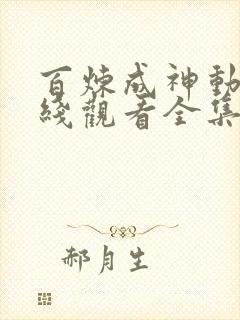 百煉成神動
綫觀看全集
郝月生